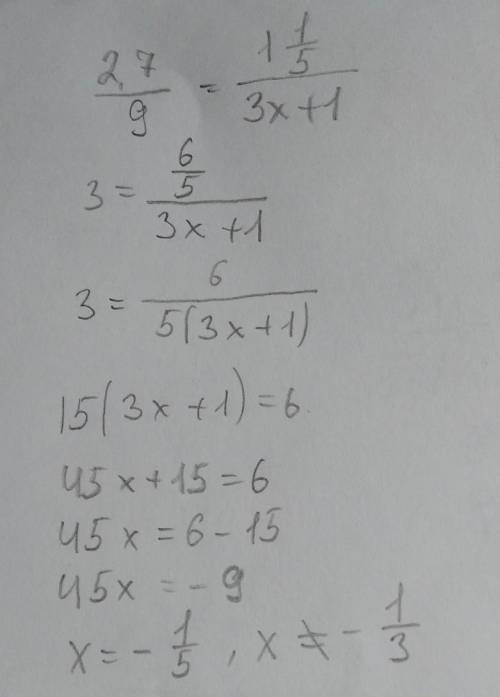 2,7/9 = 1 1/5 / 3x+1
3 = 6/5 / 3x+1
3 = 6 / 5(3x+1)
15(3x+1)=6
45x+15=6
45x=6-15
45x=-9
x=-1/5, x≠-1/3